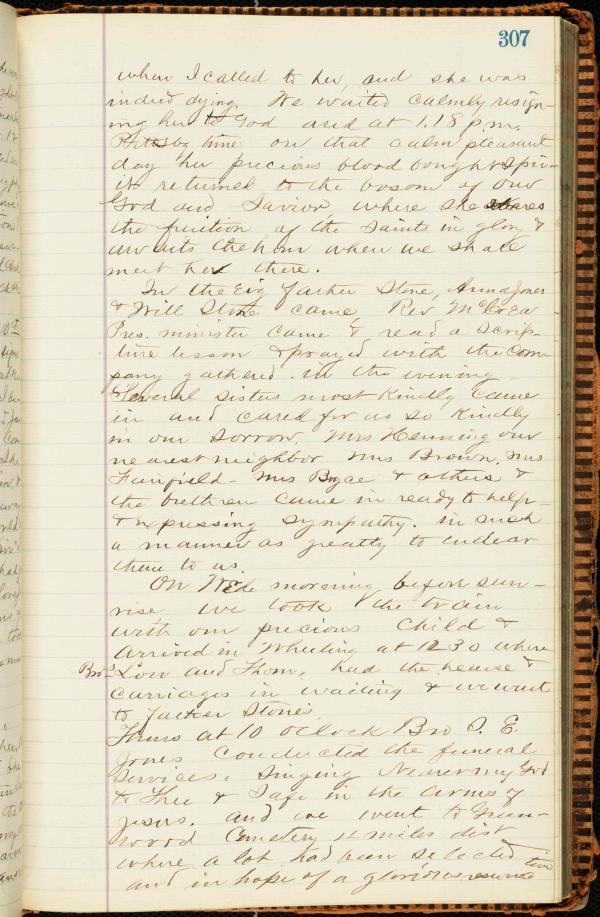 307
when I called to her, and she was
indeed dying. We waited calmly resign-
ing her to God and at 1.18 p.m.
Pittsbg time on that calm pleasant
day her precious blood bought spir-
it returned to the bosom of our
God and Savior where she shares
the fruition of the saints in glory &
awaits the hour when we shall
meet her there.
In the Evg father Stone, Anna Jones
& Will Stone came, Rev McCrea
Pres. minister came & read a Scrip-
ture lesson & prayed with the com-
pany gathered in the evening
Several sisters most kindly came
in and cared for us so kindly
in our sorrow. Mrs Henning our
nearest neighbor Mrs Brown, Mrs
Fairfield - Mrs Boyce & others &
the brethren came in ready to help
& expressing sympathy. in such
a manner as greatly to endear
them to us.
On Wed. morning before sun-
rise we took the train
with our precious Child &
arrived in Wheeling at 12 30 where
Bros Low and Thom, had the hearse &
carriages in waiting & we went
to father Stone's
Thurs at 10 oclock Bro S. E.
Jones Conducted the funeral
Services. Singing Nearer my God
to Thee & Safe in the arms of
Jesus. and we went to Green-
wood Cemetery 4 miles dist
where a lot had been selected
and in hope of a glorious resurrec
tion